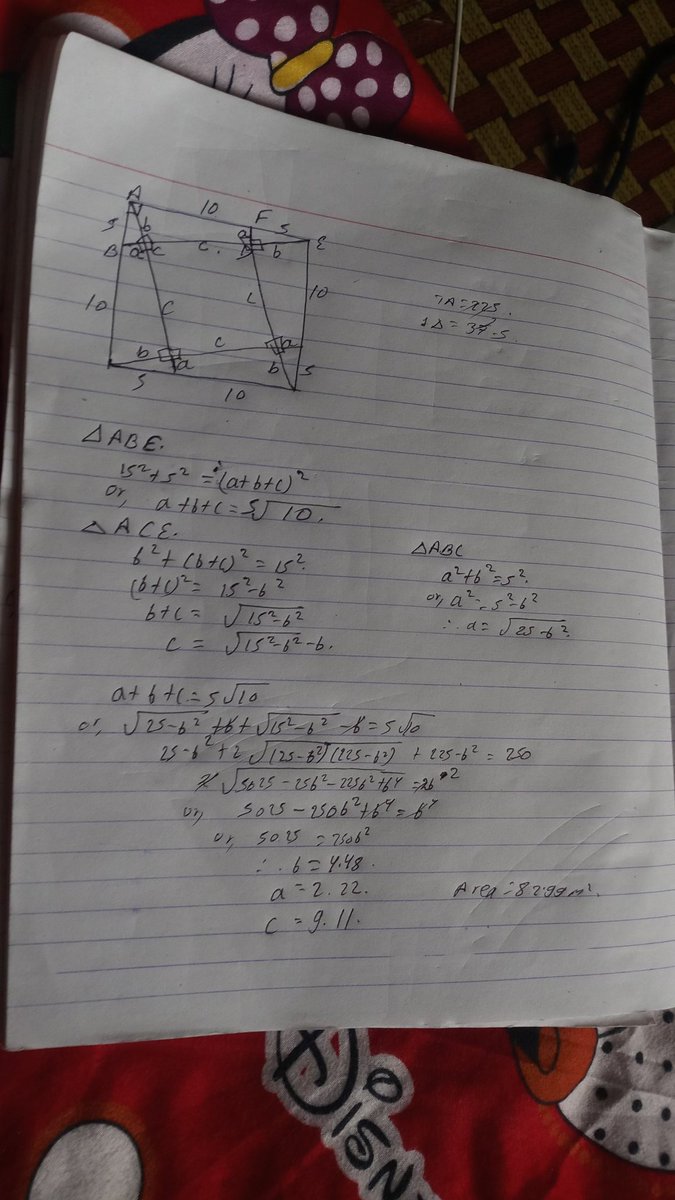 A
10
5
b
F
5
B
a
c
c.
a
b
b
E
10
c
L
10
b
c
a
a
5
10
b
5
1A=225.
1Δ= 37.5.
ΔABE.
15²+5² = (a+b+c)²
or, a+b+c = 5√10.
ΔACE.
b²+(b+c)² = 15².
(b+c)² = 15²-b²
b+c = √15²-b²
c = √15²-b² -b.
ΔABC
a²+b²=5².
or, a²=5²-b²
∴ a= √25-b².
a+b+c=5√10
or, √25-b² +b+√15²-b² -b=5√10
25-b²+2√(25-b²)(225-b²) + 225-b² = 250
2√5025-25b²-225b²+b⁴ =2b²
or, 5025-250b²+b⁴=b⁴
or, 5025 =250b²
∴ b=4.48.
a=2.22.
c = 9.11.
Area=82.99m².
DISN